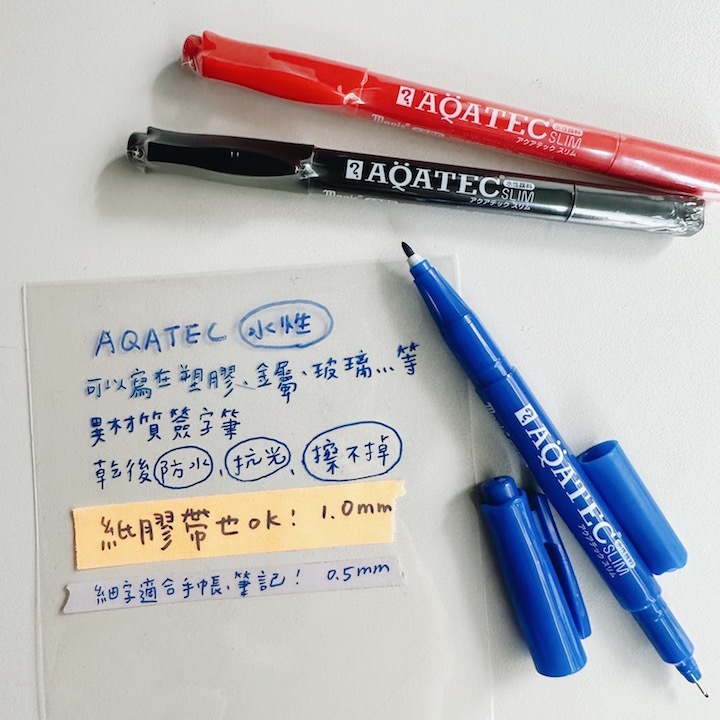 AQATEC SLIM
水性顔料
アクアテック スリム
Magic
AQATEC SLIM
水性顔料
アクアテック スリム
Magic
AQATEC 水性
可以寫在塑膠、金屬、玻璃...等
異材質簽字筆
乾後防水、抗光、擦不掉
紙膠帶也ok! 1.0mm
細字適合手帳、筆記! 0.5mm
AQATEC SLIM
アクアテック スリム